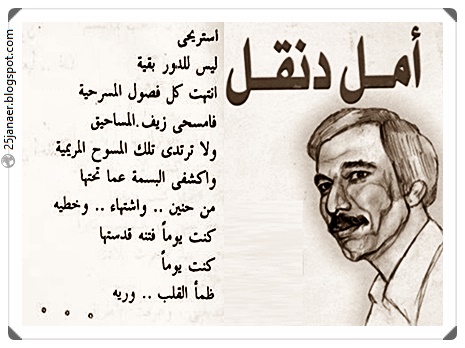 أمل دنقل
استريحى
ليس للدور بقية
انتهت كل فصول المسرحية
فامسحى زيف.المساحيق
ولا ترتدى تلك المسوح المريمية
واكشفى البسمة عما تحتها
من حنين .. واشتهاء .. وخطيه
كنت يوماً فتنه قدستها
كنت يوماً
ظمأ القلب .. وريه
° ° °
25janaer.blogspot.com